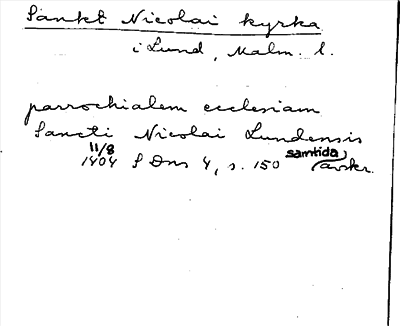 Sankt Nicolai kyrka
i Lund, Malm. l.
parrochialem ecclesiam
Sancti Nicolai Lundensis
11/8
1404 SDns 4, s. 150 (samtida avskr.